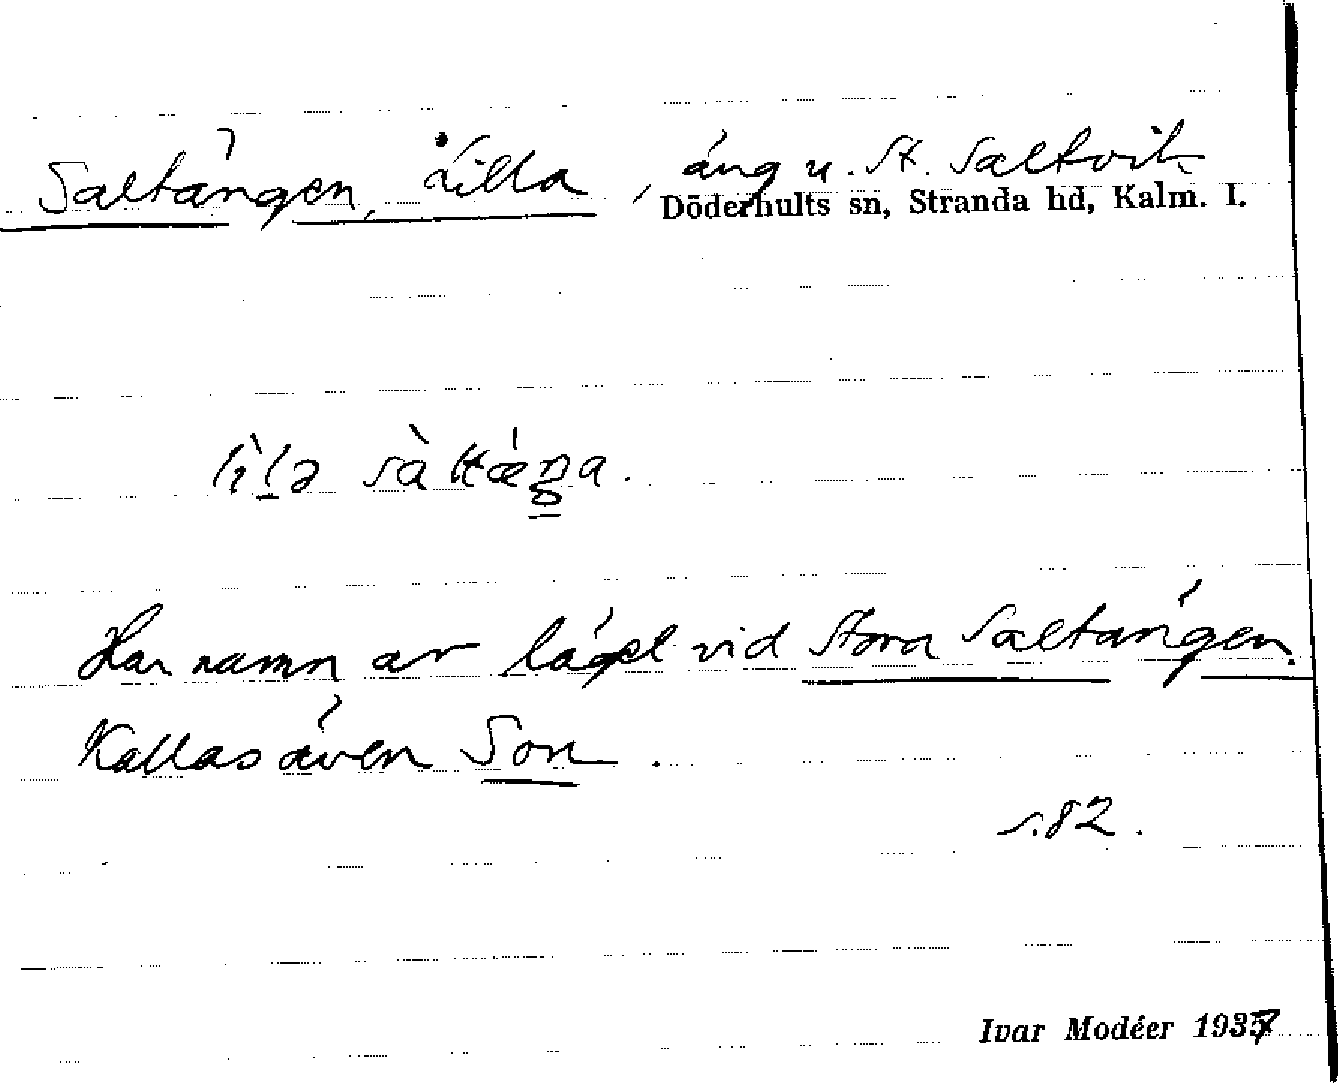 Saltängen, Lilla, äng u. St. Saltvik
Döderhults sn, Stranda hd, Kalm. l.
lìlə sàltæŋa.
Har namn av läget vid Stora Saltängen.
Kallas även Son.
s. 82.
Ivar Modéer 1937